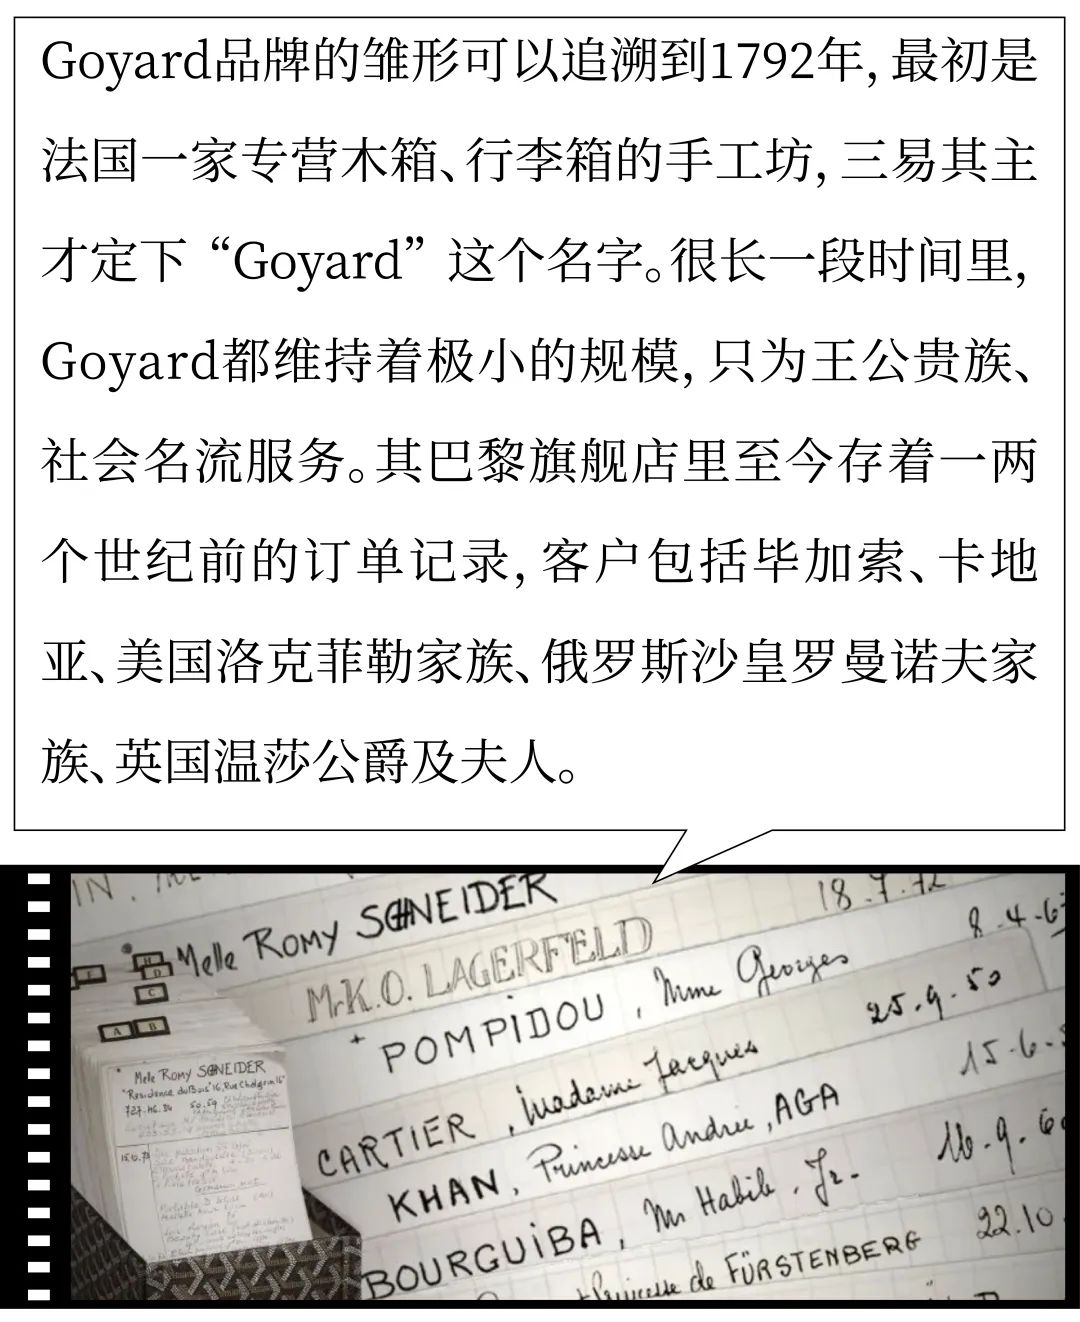 Goyard品牌的雏形可以追溯到1792年，最初是
法国一家专营木箱、行李箱的手工坊，三易其主
才定下“Goyard”这个名字。很长一段时间里，
Goyard都维持着极小的规模，只为王公贵族、
社会名流服务。其巴黎旗舰店里至今存着一两
个世纪前的订单记录，客户包括毕加索、卡地
亚、美国洛克菲勒家族、俄罗斯沙皇罗曼诺夫家
族、英国温莎公爵及夫人。
Melle ROMY SCHNEIDER
18.7.72
Mr K.O. LAGERFELD
POMPIDOU, Mme Georges
8-4-6
CARTIER, Madame Jacques
25.9.50
KHAN, Princesse Andrée, AGA
15-6-
BOURGUIBA, Mr Habib. Jr.
16-9-6
Princesse de FÜRSTENBERG
22.10
E
H
D
C
A B
Melle ROMY SCHNEIDER
"Résidence du Bois" 16, Rue Chalgrin 16e
727.46.34 50.59